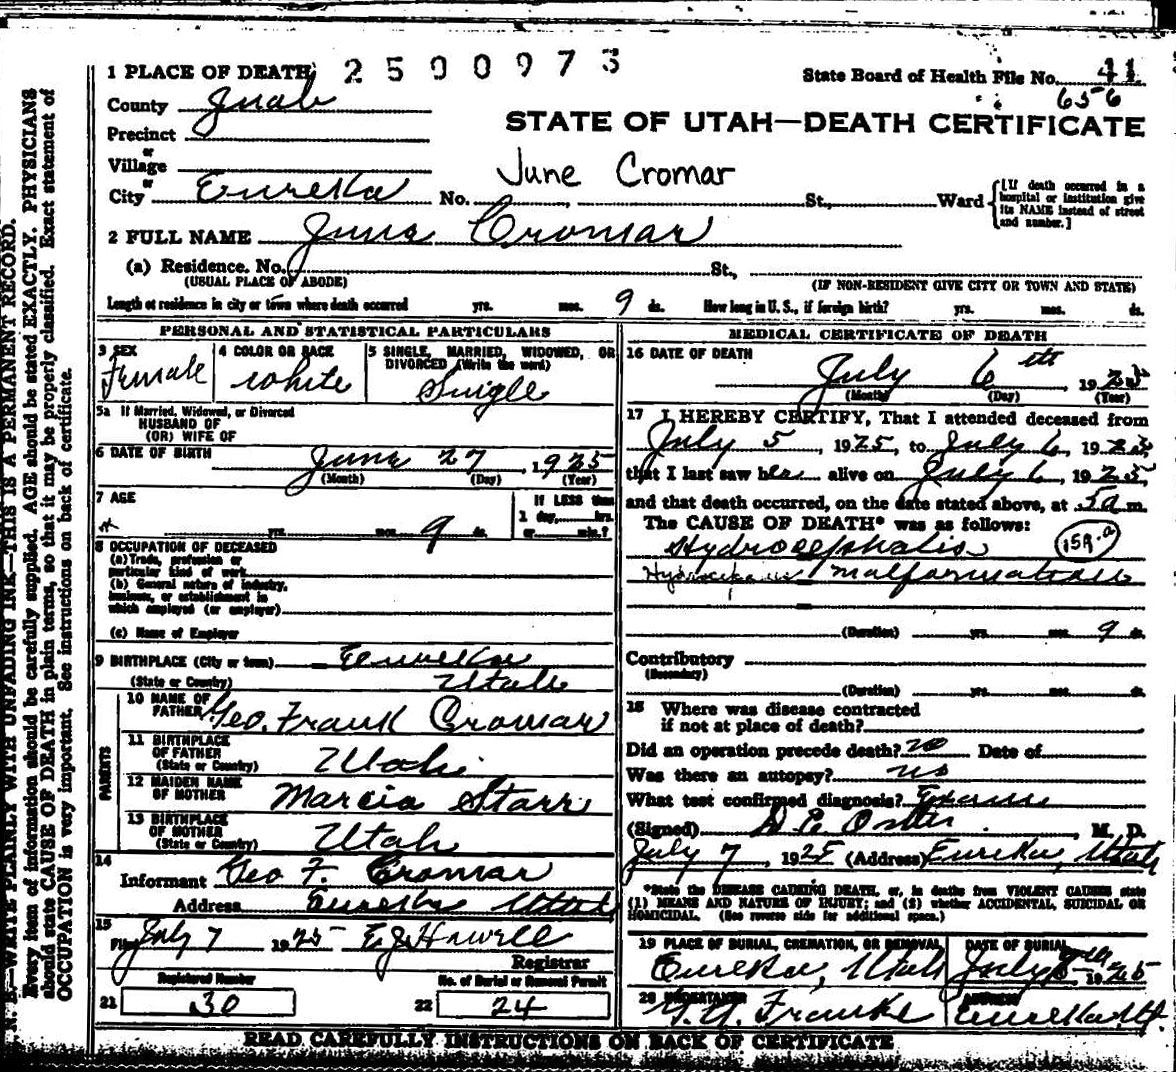 1 PLACE OF DEATH, 2500973
State Board of Health File No. 41
656
County Juab
STATE OF UTAH—DEATH CERTIFICATE
Precinct
or
Village
June Cromar
or
City Eureka No. , St., Ward
[If death occurred in a
hospital or institution give
its NAME instead of street
and number.]
2 FULL NAME June Cromar
(a) Residence. No. St.,
(USUAL PLACE OF ABODE) (IF NON-RESIDENT GIVE CITY OR TOWN AND STATE)
Length of residence in city or town where death occurred yrs. mos. 9 ds. How long in U. S., if foreign birth? yrs. mos. ds.
PERSONAL AND STATISTICAL PARTICULARS
3 SEX
Female
4 COLOR OR RACE
White
5 SINGLE, MARRIED, WIDOWED, OR
DIVORCED (Write the word)
Single
5a If Married, Widowed, or Divorced
HUSBAND OF
(OR) WIFE OF
6 DATE OF BIRTH June 27, 1925
(Month) (Day) (Year)
7 AGE
yrs. mos. 9 ds.
If LESS than
1 day, hrs.
or min.?
8 OCCUPATION OF DECEASED
(a) Trade, profession or
particular kind of work
(b) General nature of industry,
business, or establishment in
which employed (or employer)
(c) Name of Employer
9 BIRTHPLACE (City or town) Eureka
(State or Country) Utah
PARENTS
10 NAME OF
FATHER Geo. Frank Cromar
11 BIRTHPLACE
OF FATHER
(State or Country) Utah
12 MAIDEN NAME
OF MOTHER Marcia Starr
13 BIRTHPLACE
OF MOTHER
(State or Country) Utah
14
Informant Geo F. Cromar
Address Eureka Utah
15
Filed July 7 1925 E J Howell
Registrar
Registered Number
21 30
No. of Burial or Removal Permit
22 24
MEDICAL CERTIFICATE OF DEATH
16 DATE OF DEATH
July 6th 1925
(Month) (Day) (Year)
17 I HEREBY CERTIFY, That I attended deceased from
July 5, 1925, to July 6, 1925,
that I last saw her alive on July 6, 1925,
and that death occurred, on the date stated above, at 5a m.
The CAUSE OF DEATH* was as follows:
Hydrocephalis 159.a
malformation
(Duration) yrs. mos. 9 ds.
Contributory
(Secondary)
(Duration) yrs. mos. ds.
18 Where was disease contracted
if not at place of death?
Did an operation precede death? no Date of
Was there an autopsy? no
What test confirmed diagnosis? Exam
(Signed) , M. D.
July 7, 1925 (Address) Eureka, Utah
*State the DISEASE CAUSING DEATH, or, in deaths from VIOLENT CAUSES state
(1) MEANS AND NATURE OF INJURY; and (2) whether ACCIDENTAL, SUICIDAL OR
HOMICIDAL. (See reverse side for additional space.)
19 PLACE OF BURIAL, CREMATION, OR REMOVAL
Eureka, Utah
DATE OF BURIAL
July 1925
20 UNDERTAKER
Franke
ADDRESS
Eureka, Ut
READ CAREFULLY INSTRUCTIONS ON BACK OF CERTIFICATE
N. B.—WRITE PLAINLY WITH UNFADING INK—THIS IS A PERMANENT RECORD.
Every item of information should be carefully supplied. AGE should be stated EXACTLY. PHYSICIANS
should state CAUSE OF DEATH in plain terms, so that it may be properly classified. Exact statement of
OCCUPATION is very important. See instructions on back of certificate.